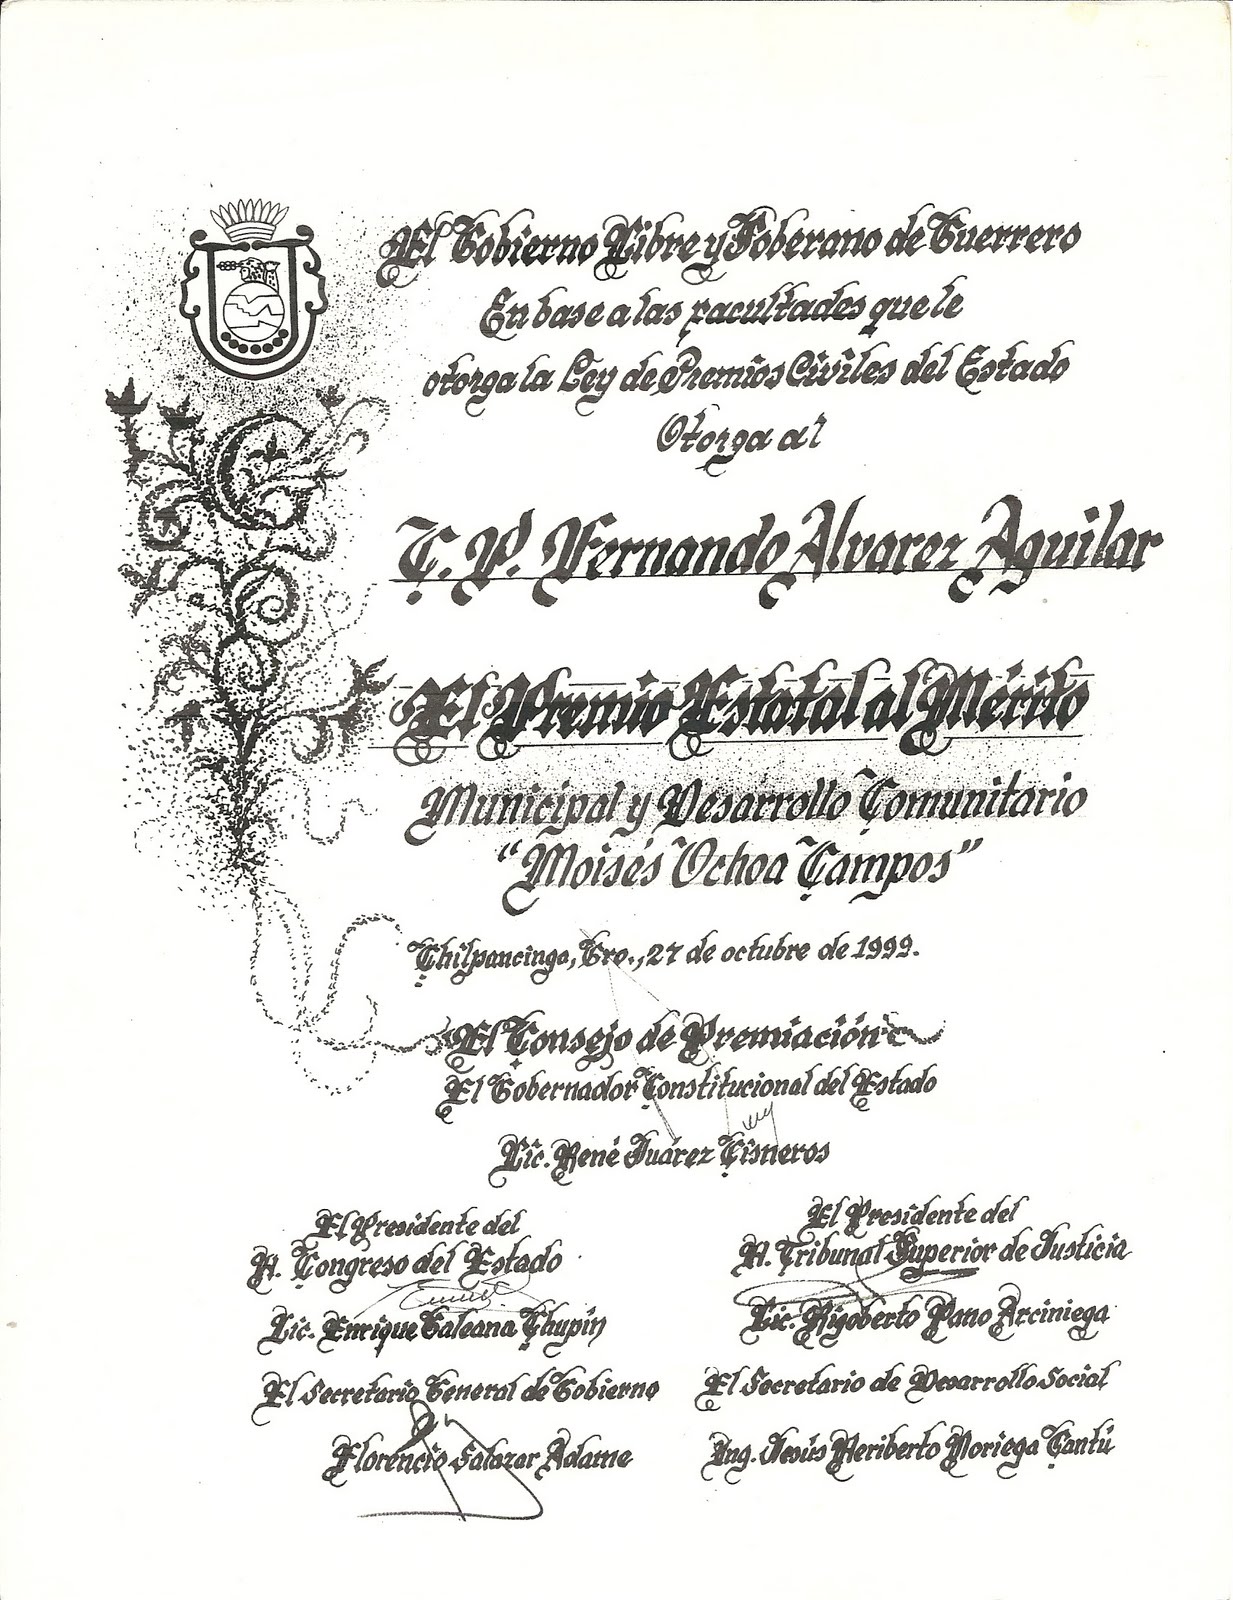 El Gobierno Libre y Soberano de Guerrero
En base a las facultades que le
otorga la Ley de Premios Civiles del Estado
Otorga al
C.P. Fernando Alvarez Aguilar
El Premio Estatal al Mérito
Municipal y Desarrollo Comunitario
"Moisés Ochoa Campos"
Chilpancingo, Gro., 27 de octubre de 1999.
El Consejo de Premiación
El Gobernador Constitucional del Estado
Lic. René Juárez Cisneros
El Presidente del
H. Congreso del Estado
Lic. Enrique Galeana Chupín
El Presidente del
H. Tribunal Superior de Justicia
Lic. Rigoberto Pano Arciniega
El Secretario General de Gobierno
Florencio Salazar Adame
El Secretario de Desarrollo Social
Ing. Jesús Heriberto Noriega Cantú